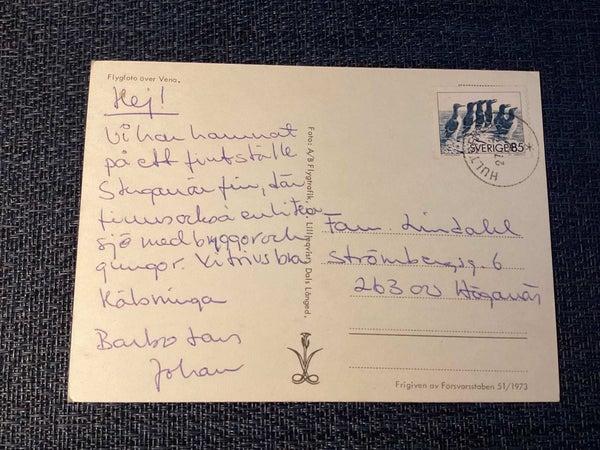 Flygfoto över Vena.
Hej!
Vi har hamnat
på ett fint ställe
Stugan är fin, där
finns också en liten
sjö med bryggor och
gungor. Vi trivs bra
Hälsninga
Barbro Lars
Johan
Foto: A/B Flygtrafik, Dals Långed.
SVERIGE 85
HULT
Fam. Lindahl
Strömbergsg. 6
263 00 Höganäs
Frigiven av Försvarsstaben 51/1973